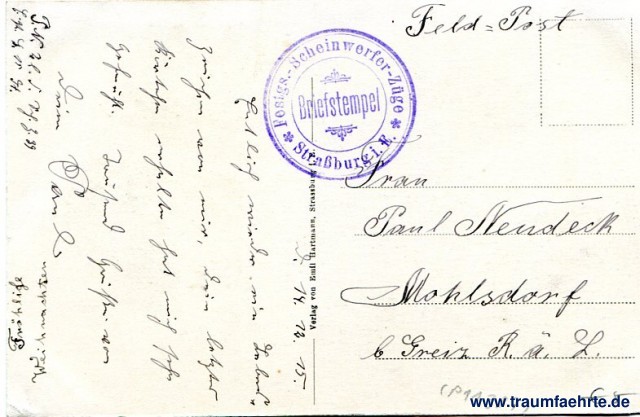 Feld=Post
Festgs.-Scheinwerfer-Züge
Briefstempel
Straßburg i. E.
Frau
Paul Neudeck
Mohlsdorf
b Greiz R. ä. L.
Verlag von Emil Hartmann, Strassburg
D. 14. 12. 15.
Endlich wieder ein Lebens
zeichen von mir, Dein letztes
Kärtchen erhalten hat mich sehr
gefreut. Tausend Grüße von
Dein Paul
Fröhliche
Weihnachten
www.traumfaehrte.de